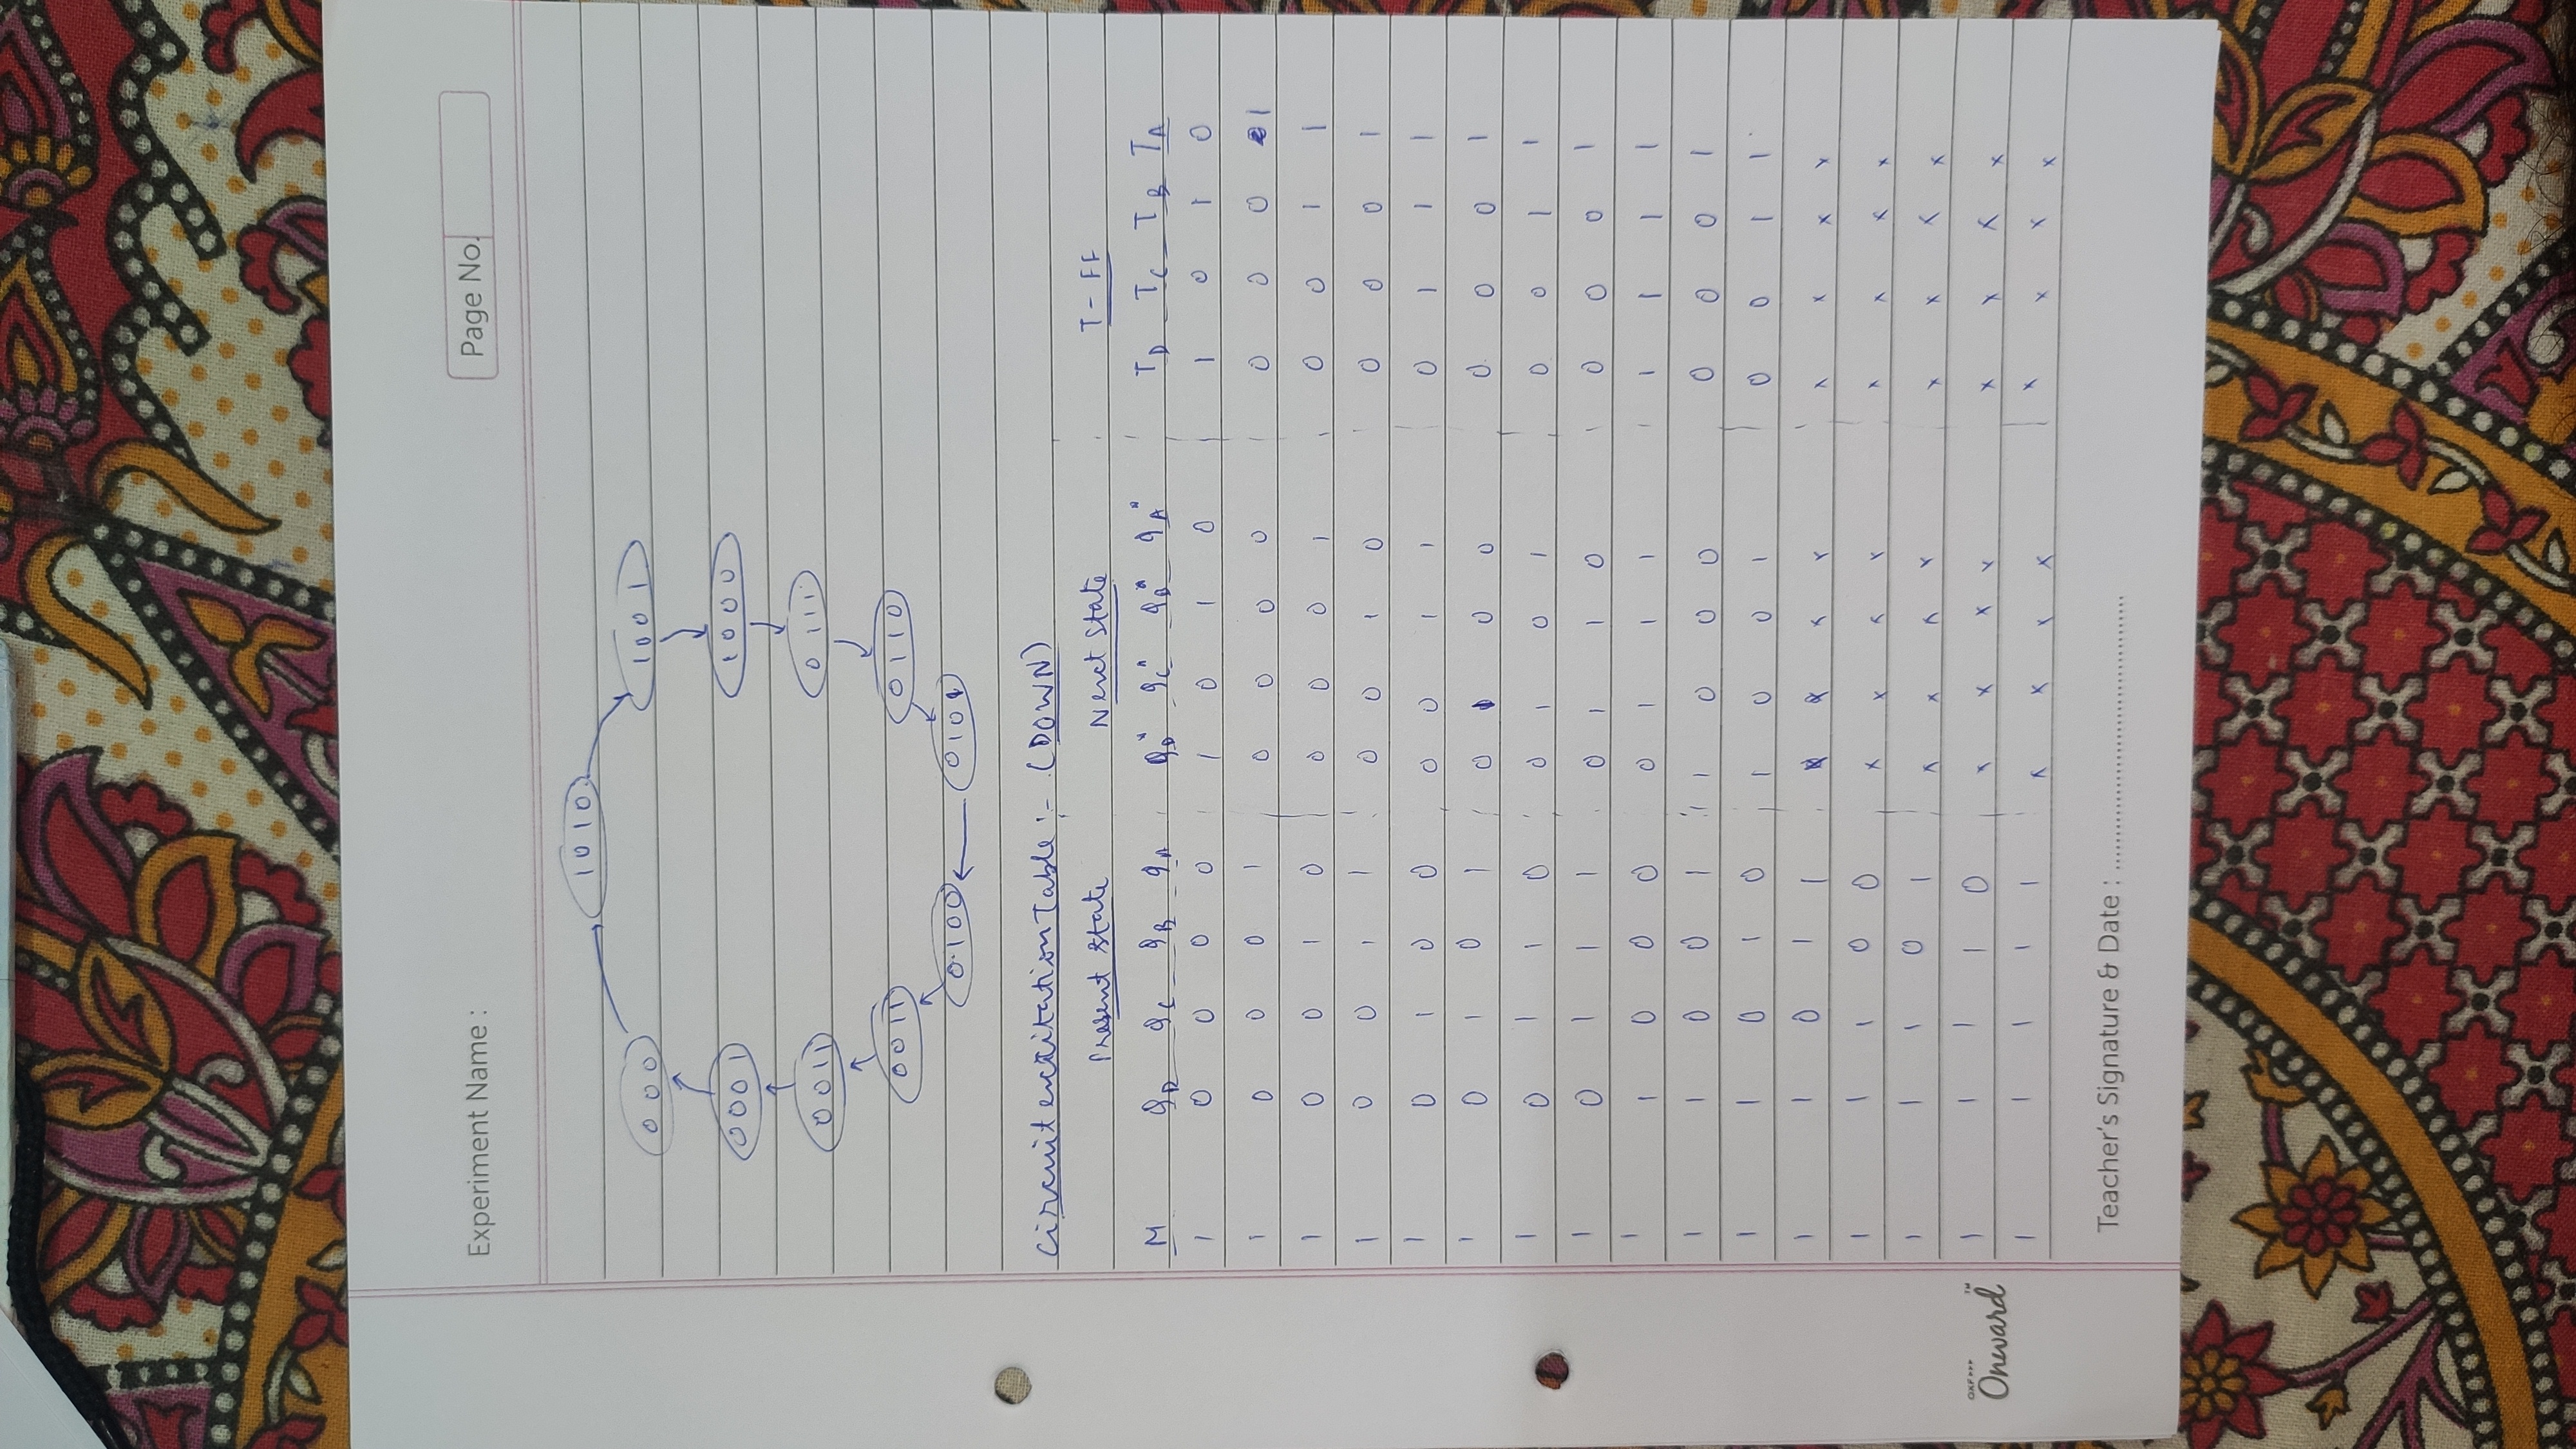 Experiment Name :
Page No.
1010
000
1001
0001
1000
0011
0111
0011
0110
0100
0101
Circuit excitation Table :- (DOWN)
Present State Next State T-FF
M QD QC QB QA QD* QC* QB* QA* TD TC TB TA
1 0 0 0 0 1 0 1 0 1 0 1 0
1 0 0 0 1 0 0 0 0 0 0 0 1
1 0 0 1 0 0 0 0 1 0 0 1 1
1 0 0 1 1 0 0 1 0 0 0 0 1
1 0 1 0 0 0 0 1 1 0 1 1 1
1 0 1 0 1 0 1 0 0 0 0 0 1
1 0 1 1 0 0 1 0 1 0 0 1 1
1 0 1 1 1 0 1 1 0 0 0 0 1
1 1 0 0 0 0 1 1 1 1 1 1 1
1 1 0 0 1 1 0 0 0 0 0 0 1
1 1 0 1 0 1 0 0 1 0 0 1 1
1 1 0 1 1 x x x x x x x x
1 1 1 0 0 x x x x x x x x
1 1 1 0 1 x x x x x x x x
1 1 1 1 0 x x x x x x x x
1 1 1 1 1 x x x x x x x x
OXF▸▸▸
Onward™
Teacher's Signature & Date : ........................................